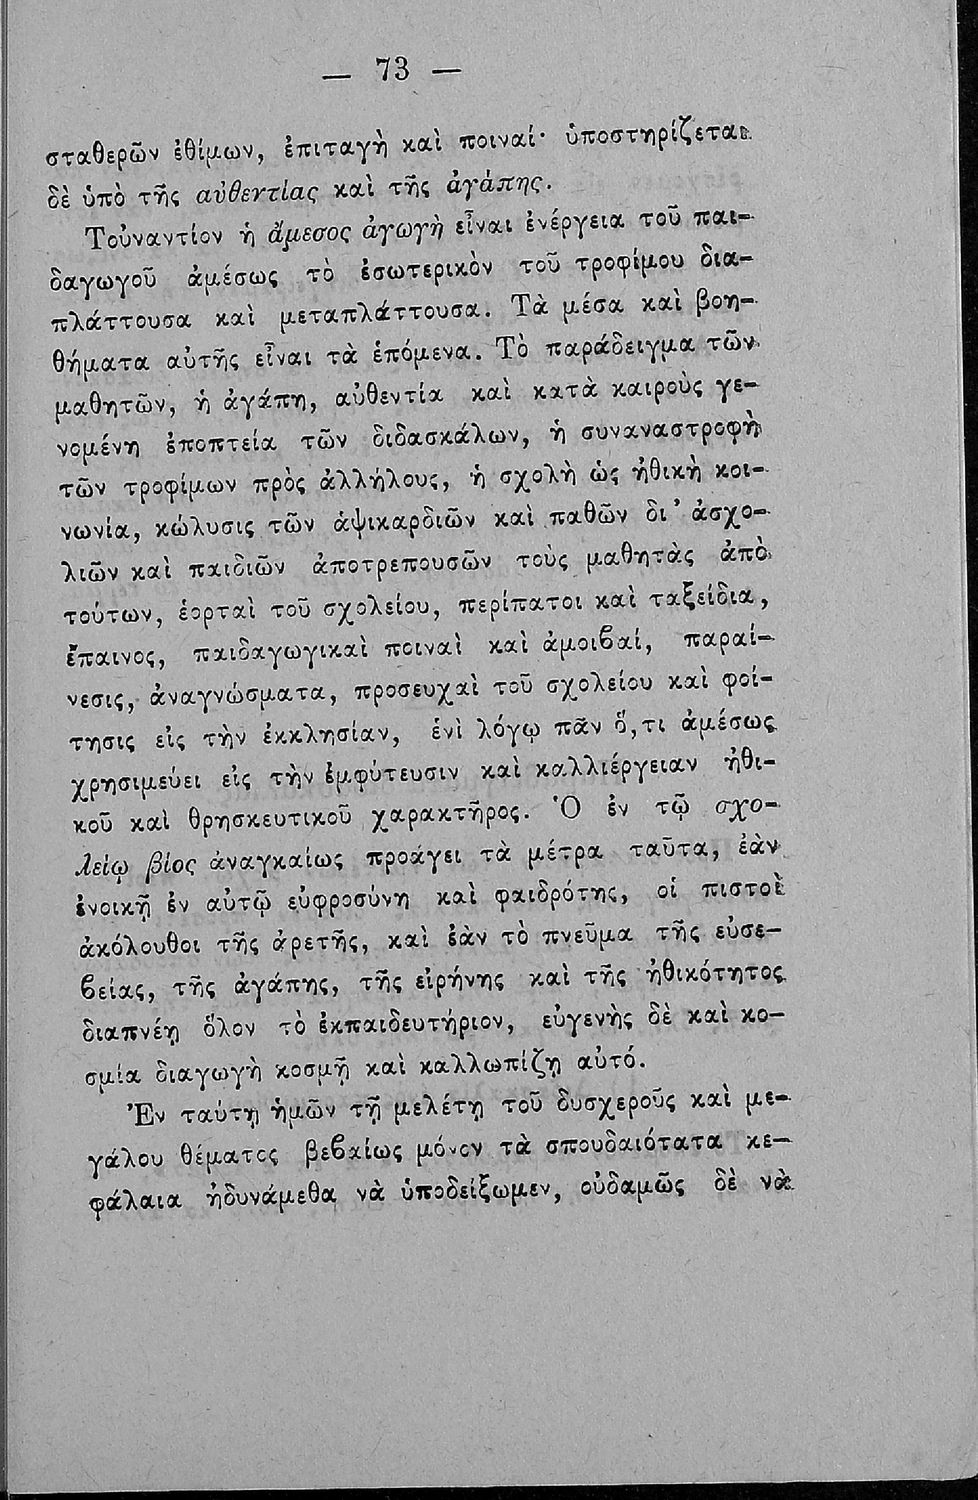 — 73 —
σταθερῶν ἐθίμων, ἐπιταγὴ καὶ ποιναί· ὑποστηρίζεται
δὲ ὑπὸ τῆς αὐθεντίας καὶ τῆς ἀγάπης.
Τοὐναντίον ἡ ἄμεσος ἀγωγὴ εἶναι ἐνέργεια τοῦ παι-
δαγωγοῦ ἀμέσως τὸ ἐσωτερικὸν τοῦ τροφίμου δια-
πλάττουσα καὶ μεταπλάττουσα. Τὰ μέσα καὶ βοη-
θήματα αὐτῆς εἶναι τὰ ἑπόμενα. Τὸ παράδειγμα τῶν
μαθητῶν, ἡ ἀγάπη, αὐθεντία καὶ κατὰ καιροὺς γε-
νομένη ἐποπτεία τῶν διδασκάλων, ἡ συναναστροφὴ
τῶν τροφίμων πρὸς ἀλλήλους, ἡ σχολὴ ὡς ἠθικὴ κοι-
νωνία, κώλυσις τῶν ἁψικαρδιῶν καὶ παθῶν δι' ἀσχο-
λιῶν καὶ παιδιῶν ἀποτρεπουσῶν τοὺς μαθητὰς ἀπὸ
τούτων, ἑορταὶ τοῦ σχολείου, περίπατοι καὶ ταξείδια,
ἔπαινος, παιδαγωγικαὶ ποιναὶ καὶ ἀμοιβαί, παραί-
νεσις, ἀναγνώσματα, προσευχαὶ τοῦ σχολείου καὶ φοί-
τησις εἰς τὴν ἐκκλησίαν, ἑνὶ λόγῳ πᾶν ὅ,τι ἀμέσως
χρησιμεύει εἰς τὴν ἐμφύτευσιν καὶ καλλιέργειαν ἠθι-
κοῦ καὶ θρησκευτικοῦ χαρακτῆρος. Ὁ ἐν τῷ σχο-
λείῳ βίος ἀναγκαίως προάγει τὰ μέτρα ταῦτα, ἐὰν
ἐνοικῇ ἐν αὐτῷ εὐφροσύνη καὶ φαιδρότης, οἱ πιστοὶ
ἀκόλουθοι τῆς ἀρετῆς, καὶ ἐὰν τὸ πνεῦμα τῆς εὐσε-
βείας, τῆς ἀγάπης, τῆς εἰρήνης καὶ τῆς ἠθικότητος
διαπνέῃ ὅλον τὸ ἐκπαιδευτήριον, εὐγενὴς δὲ καὶ κο-
σμία διαγωγὴ κοσμῇ καὶ καλλωπίζῃ αὐτό.
Ἐν ταύτῃ ἡμῶν τῇ μελέτῃ τοῦ δυσχεροῦς καὶ με-
γάλου θέματος βεβαίως μόνον τὰ σπουδαιότατα κε-
φάλαια ἠδυνάμεθα νὰ ὑποδείξωμεν, οὐδαμῶς δὲ νὰ